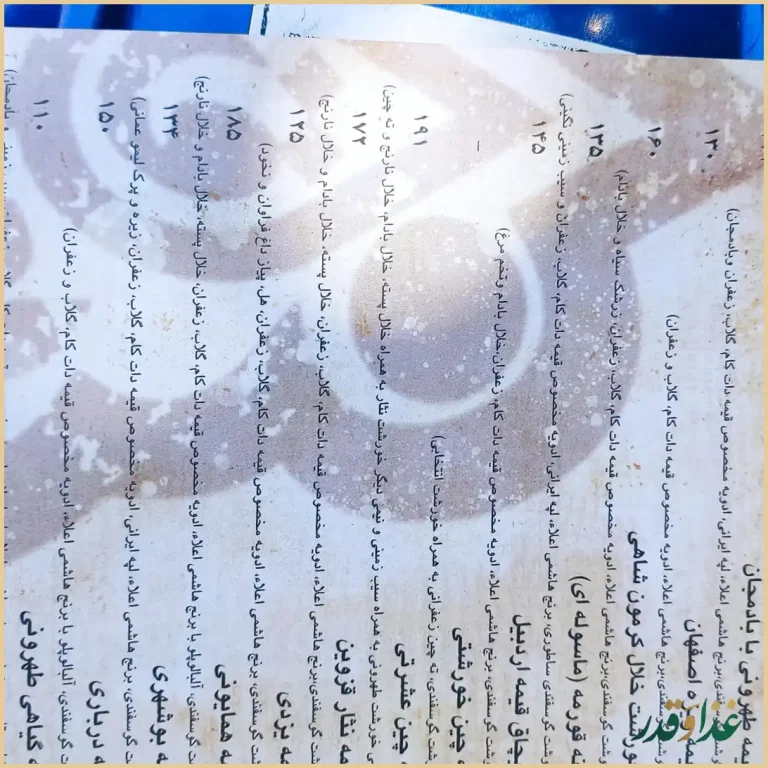 یمه طهرونی با بادمجان
گوسفندی، برنج هاشمی اعلاء، لپه ایرانی، ادویه مخصوص قیمه دات کام، گلاب، زعفران وبادمجان)
اصفهان ۱۳۰
گوسفندی، برنج هاشمی اعلاء، ادویه مخصوص قیمه دات کام، گلاب و زعفران)
ورشت خلال کرمون شاهی ۱۶۰
شت گوسفندی، برنج هاشمی اعلاء، ادویه مخصوص قیمه دات کام، گلاب، زعفران، زرشک سیاه و خلال بادام)
نه قورمه (ماسوله ای) ۱۳۵
وشت گوسفندی ساطوری، برنج هاشمی اعلاء، لپه ایرانی، ادویه مخصوص قیمه دات کام، گلاب، زعفران و سیب زمینی نگینی)
یچاق قیمه اردبیل ۱۴۵
شت گوسفندی، برنج هاشمی اعلاء، ادویه مخصوص قیمه دات کام، زعفران، خلال بادام وتخم مرغ)
ه چین خورشتی -
شت گوسفندی، ته چین زعفرانی به همراه خورشت انتخابی)
چین عشرتی ۱۹۱
ی خورشت طهرونی به همراه سیب زمینی و نیمی دیگر خورشت نثار به همراه خلال پسته، خلال بادام، خلال نارنج و ته چین)
مه نثار قزوین ۱۷۲
شت گوسفندی، برنج هاشمی اعلاء، ادویه مخصوص قیمه دات کام، گلاب، زعفران، خلال پسته، خلال بادام و خلال نارنج)
مه یزدی ۱۲۵
شت گوسفندی، برنج هاشمی اعلاء، ادویه مخصوص قیمه دات کام، گلاب، زعفران، هل، پیاز داغ فراوان و نخود)
ه همایونی ۱۸۵
ت گوسفندی، آلبالوپلو با برنج هاشمی اعلاء، ادویه مخصوص قیمه دات کام، گلاب، زعفران، خلال پسته، خلال بادام و خلال نارنج)
ه بوشهری ۱۳۴
ت گوسفندی، برنج هاشمی اعلاء، لپه ایرانی، ادویه مخصوص قیمه دات کام، گلاب، زعفران، زیره و پرک لیمو عمانی)
ه درباری ۱۵۰
ت گوسفندی، آلبالوپلو با برنج هاشمی اعلاء، ادویه مخصوص قیمه دات کام، گلاب و زعفران)
ه گیاهی طهرونی ۱۱۰
غذا و قدر